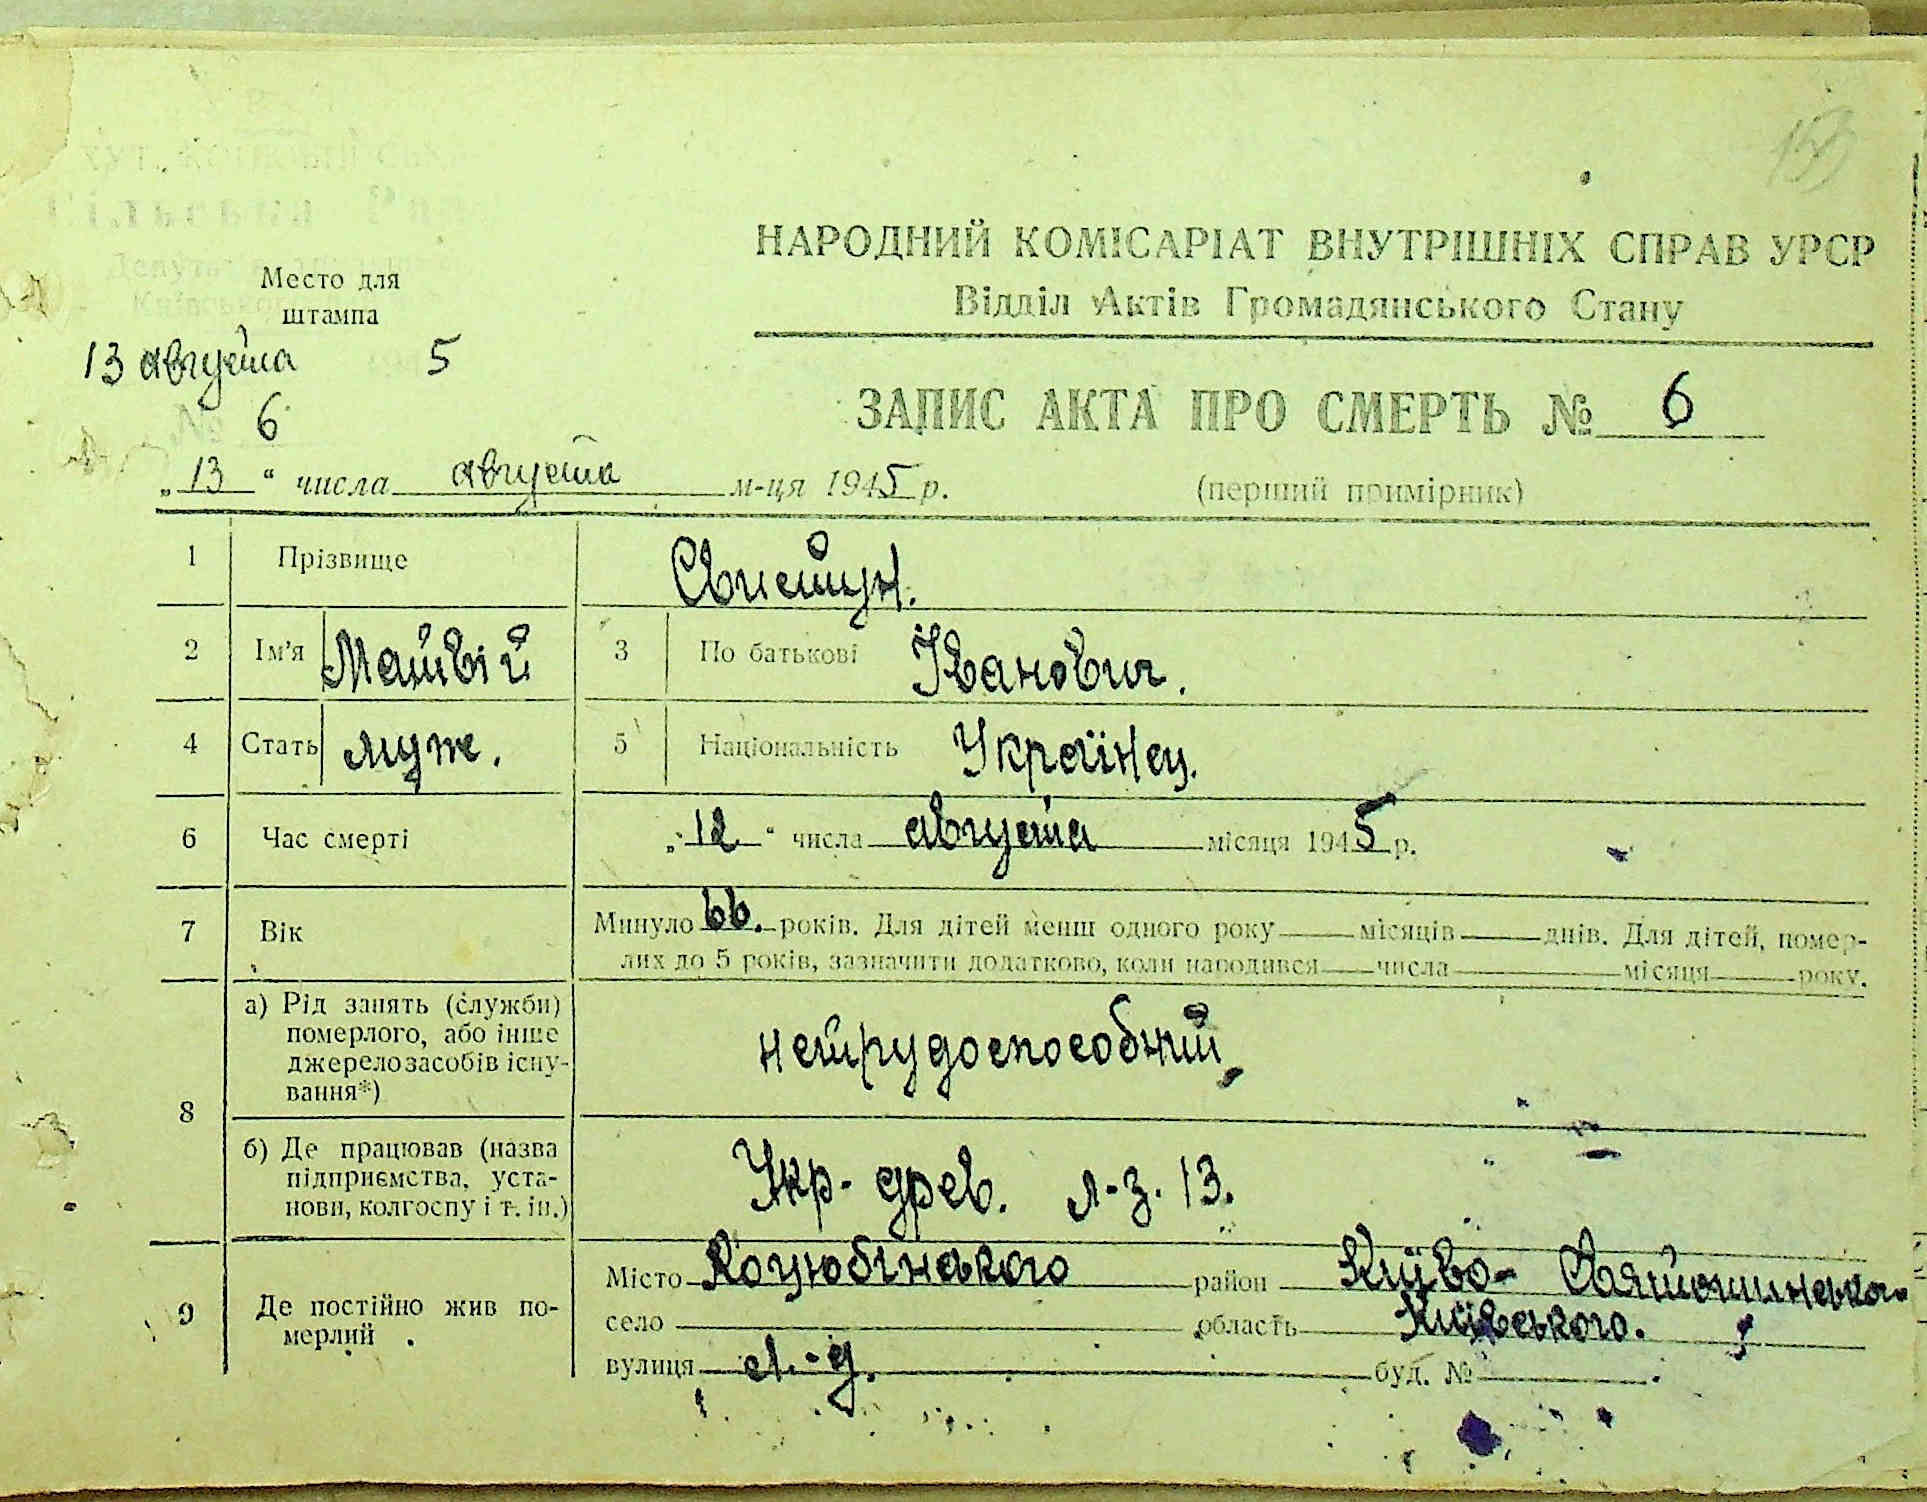 153
НАРОДНИЙ КОМІСАРІАТ ВНУТРІШНІХ СПРАВ УРСР
Відділ Актів Громадянського Стану
Место для
штампа
13 августа 5
№ 6
ЗАПИС АКТА ПРО СМЕРТЬ № 6
„13“ числа августа м-ця 1945 р.
(перший примірник)
1 Прізвище Свистун.
2 Ім'я Матвій 3 По батькові Іванович.
4 Стать муж. 5 Національність Українец.
6 Час смерті „12“ числа августа місяця 1945 р.
7 Вік Минуло 66. років. Для дітей менш одного року місяців днів. Для дітей, помер-
лих до 5 років, зазначити додатково, коли народився числа місяця року.
8 а) Рід занять (служби)
померлого, або інше
джерело засобів існу-
вання*)
нетрудоспособний
б) Де працював (назва
підприємства, уста-
нови, колгоспу і т. ін.)
Укр-древ. л-з. 13.
9 Де постійно жив по-
мерлий
Місто Коцюбінского район Київо- Святошинська
село область Київського.
вулиця буд. №